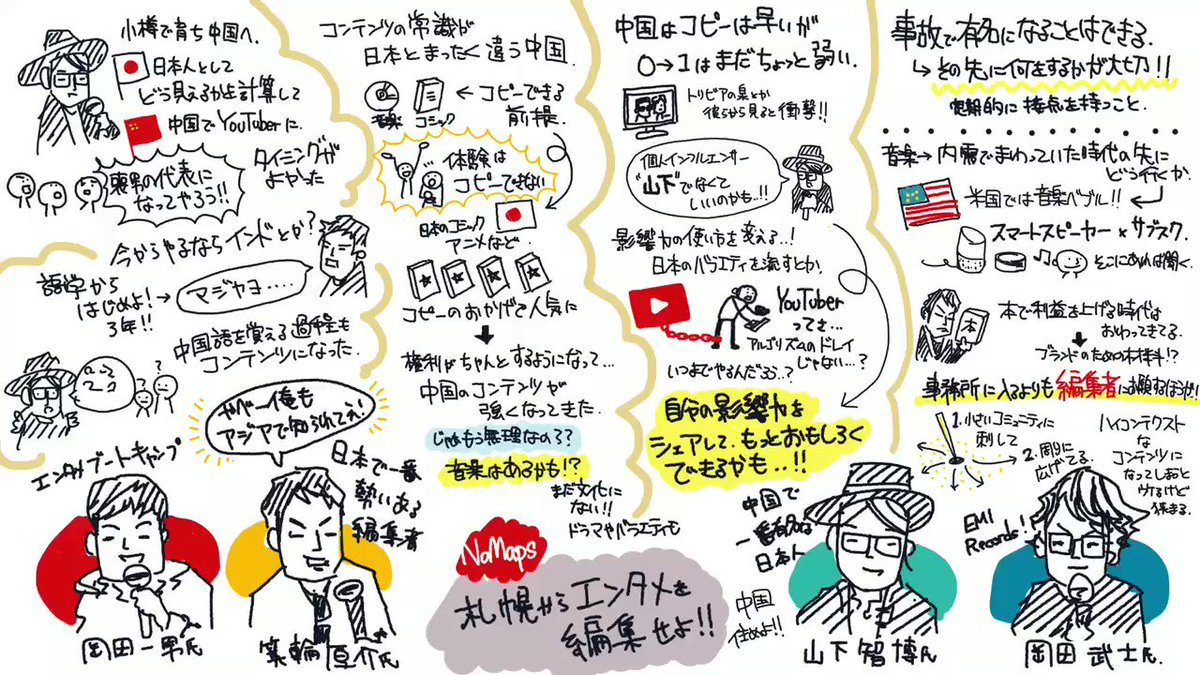 小樽で育ち中国へ.
日本人として
どう見えるかを計算して
中国でYouTuberに.
喪男の代表に
なってやろう!!
タイミングが
よかった
今からやるならインドとか?
語学から
はじめよ!
3年!!
マジやヨ....
中国語を覚える過程も
コンテンツになった.
コンテンツの常識が
日本とまったく違う中国.
音楽
コミック
←コピーできる
前提.
体験は
コピーできない
日本のコミック
アニメなど
コピーのおかげで人気に
権利がちゃんとするようになって...
中国のコンテンツが
強くなってきた.
じゃもう無理なの??
音楽はあるかも!?
まだ文化に
ない!!
ドラマやバラエティも
中国はコピーは早いが
0→1はまだちょっと弱い.
トリビアの泉とか
彼らから見ると衝撃!!
個人インフルエンサー
"山下"でなくて
いいのかも..!!
影響力の使い方を変える..!
日本のバラエティを流すとか.
YouTuber
ってさ...
アルゴリズムのドレイ
じゃない...?
いつまでやるんだろう..?
自分の影響力を
シェアして、もっとおもしろく
できるかも..!!
事故で有名になることはできる.
↳その先に何をするかが大切!!
定期的に接点を持つこと.
音楽→内需でまわっていた時代の先に
どう行くか.
米国では音楽バブル!!
スマートスピーカー×サブスク.
そこにあれば聞く.
本
本で利益を上げる時代は
おわってきてる.
ブランドのための材料!?
事務所に入るよりも編集者に
1.小さいコミュニティに
刺して
2.周りに
広げてる.
ハイコンテクスト
な
コンテンツに
なってしまうと
ウケるけど
狭まる.
エンタメブートキャンプ
岡田一男氏
やべー俺も
アジアで知られてぇ!
日本で一番
勢いある
編集者
箕輪厚介氏
NoMaps
札幌からエンタメを
編集せよ!!
中国で
一番有名な
日本人
中国
住めよ!!
山下智博氏
EMI
Records!
岡田武士氏.